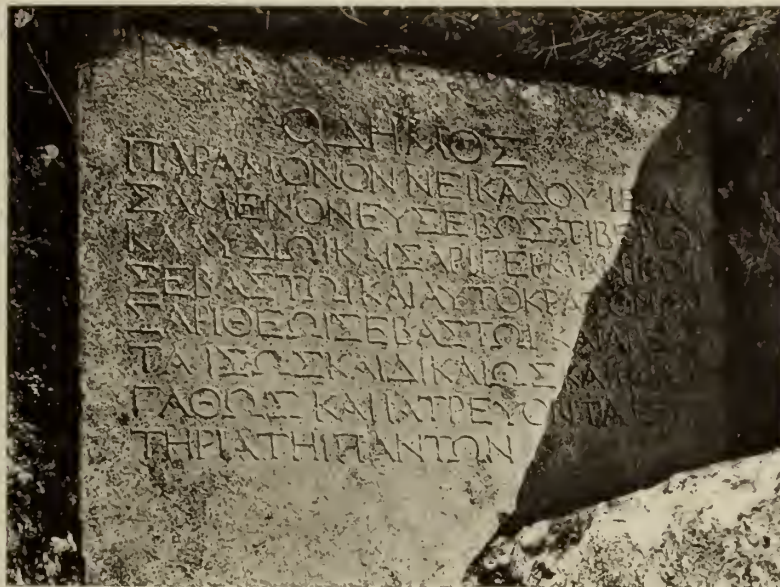 Ο ΔΗΜΟΣ
ΠΑΡΑΜΟΝΟΝ ΝΕΙΚΑΔΟΥ ΙΕΡΑ
ΣΑΜΕΝΟΝ ΕΥΣΕΒΩΣ ΤΙΒΕΡΙΩΙ
ΚΛΑΥΔΙΩΙ ΚΑΙΣΑΡΙ ΓΕΡΜΑΝΙΚΩΙ
ΣΕΒΑΣΤΩΙ ΚΑΙ
ΣΑΡΙ ΘΕΩΙ ΣΕΒΑΣΤΩΙ ΚΑΙ
ΤΑ ΙΣΩΣ ΚΑΙ ΔΙΚΑΙΩΣ ΚΑΙ
ΓΑΘΩΣ ΚΑΙ ΙΑΤΡΕΥΟΝΤΑ
ΤΗΡΙΑ ΤΗΙ ΠΑΝΤΩΝ